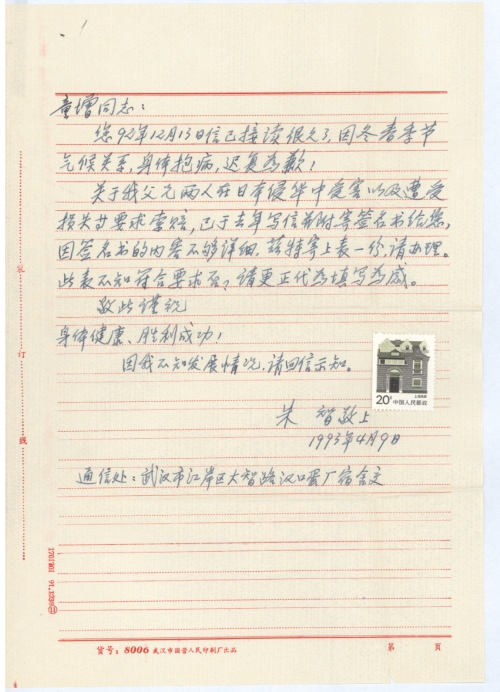 童增同志：
您92年12月13日信已接读很久了，因冬春季节
气候关系，身体抱病，迟复为歉！
关于我父兄两人在日本侵华中受害以及遭受
损失并要求索赔，已于去年写信并附寄签名书给您，
因签名书的内容不够详细，兹特寄上表一份，请办理。
此表不知符合要求否？请更正代为填写为感。
敬此谨祝
身体健康、胜利成功！
因我不知发展情况，请回信示知。
20分 中国人民邮政
上海民居
朱智敬上
1993年4月9日
通信处：武汉市江岸区大智路汉口蛋厂宿舍交
装
订
线
货号：8006 武汉市国营人民印刷厂出品
第 页